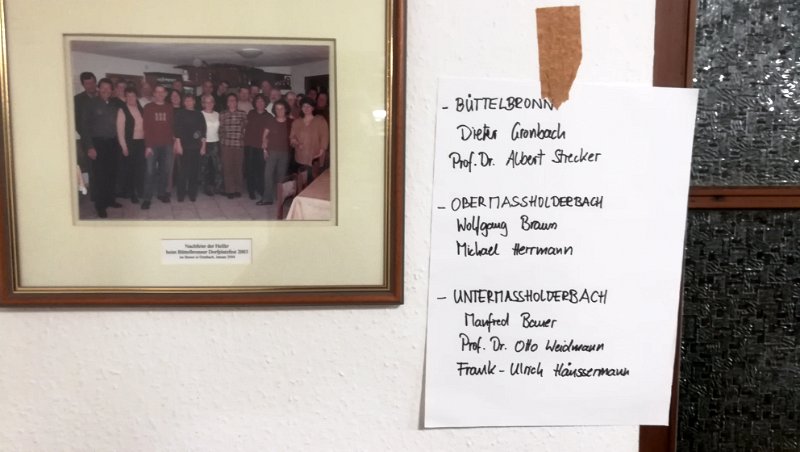 Nachfeier der Helfer
beim Büttelbronner Dorfplatzfest 2003
im Januar 2004
- BÜTTELBRONN
Dieter Gronbach
Prof. Dr. Albert Strecker
- OBERMASSHOLDERBACH
Wolfgang Braun
Michael Herrmann
- UNTERMASSHOLDERBACH
Manfred Bauer
Prof. Dr. Otto Weidmann
Frank-Ulrich Häussermann